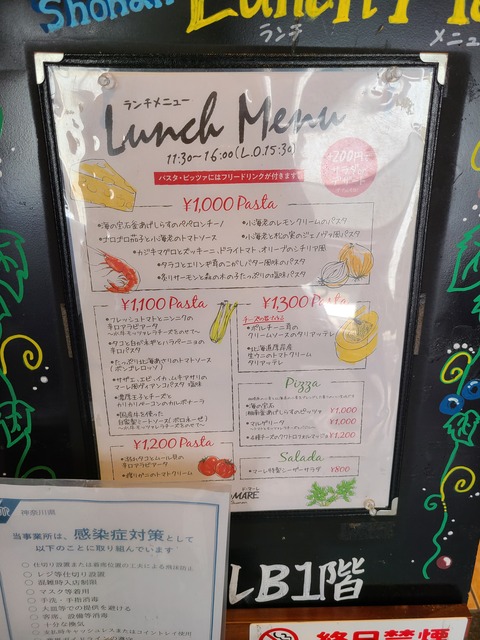 Shonan Lunch Me
ランチ
メニュ
ランチメニュー
Lunch Menu
11:30~16:00(L.O.15:30)
+200円
パスタ・ピッツァにはフリードリンクが付きます
¥1,000 Pasta
・海の宝石釜あげしらすのペペロンチーノ
・小海老のレモンクリームのパスタ
・ゴロゴロ茄子と小海老のトマトソース
・小海老と松の実のジェノヴァ風パスタ
・カジキマグロとズッキーニ、ドライトマト、オリーブのシチリア風
・タラコとエリンギ茸のこがしバター風味のパスタ
・炙りサーモンと森の木の子たっぷりの塩味パスタ
¥1,100 Pasta
・フレッシュトマトとニンニクの
辛口アラビアータ
〜水牛モッツァレラチーズをのせて〜
・タコと白ネギとハラペーニョの
辛口パスタ
・たっぷり北海あさりのトマトソース
(ボンゴレロッソ)
・サザエ、エビ、イカ、ムキアサリの
マーレ風ヴィアンコパスタ 塩味
・濃厚玉子とチーズと
カリカリベーコンのカルボナーラ
・国産牛を使った
自家製ミートソース(ボロネーゼ)
〜水牛モッツァレラチーズをのせて〜
¥1,200 Pasta
・渡りガニのトマトクリーム
¥1,300 Pasta
・ポルチーニ茸の
クリームソースのタリアッテレ
・北海道厚岸産
生ウニのトマトクリーム
タリアッテレ
Pizza
・海の宝石
湘南釜あげしらすのピッツァ ¥1,000
・マルゲリータ ¥1,000
・4種チーズのクワトロフォルマッジ ¥1,200
Salada
・マーレ特製シーザーサラダ ¥800
MARE
LB1階
神奈川県
当事業所は、感染症対策として
以下のことに取り組んでいます
○ レジ等仕切り設置
○ 混雑時入店制限
○ マスク等着用
○ 手洗・手指消毒
○ 大皿等での提供を避ける
○ 客席、設備等消毒
○ 十分な換気
終日禁煙